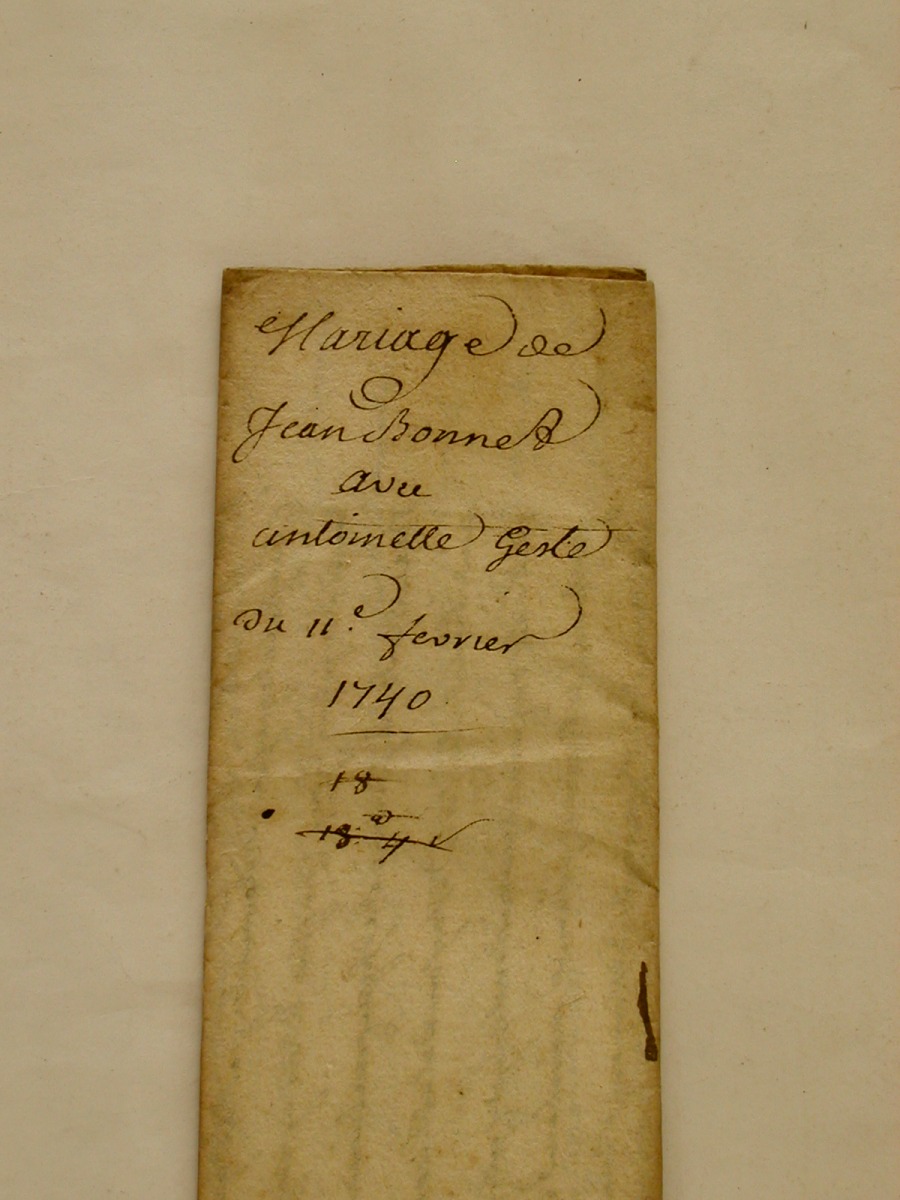 Mariage de
Jean Bonnet
avec
antoinette Geste
du 11.e fevrier
1740
18
18 4